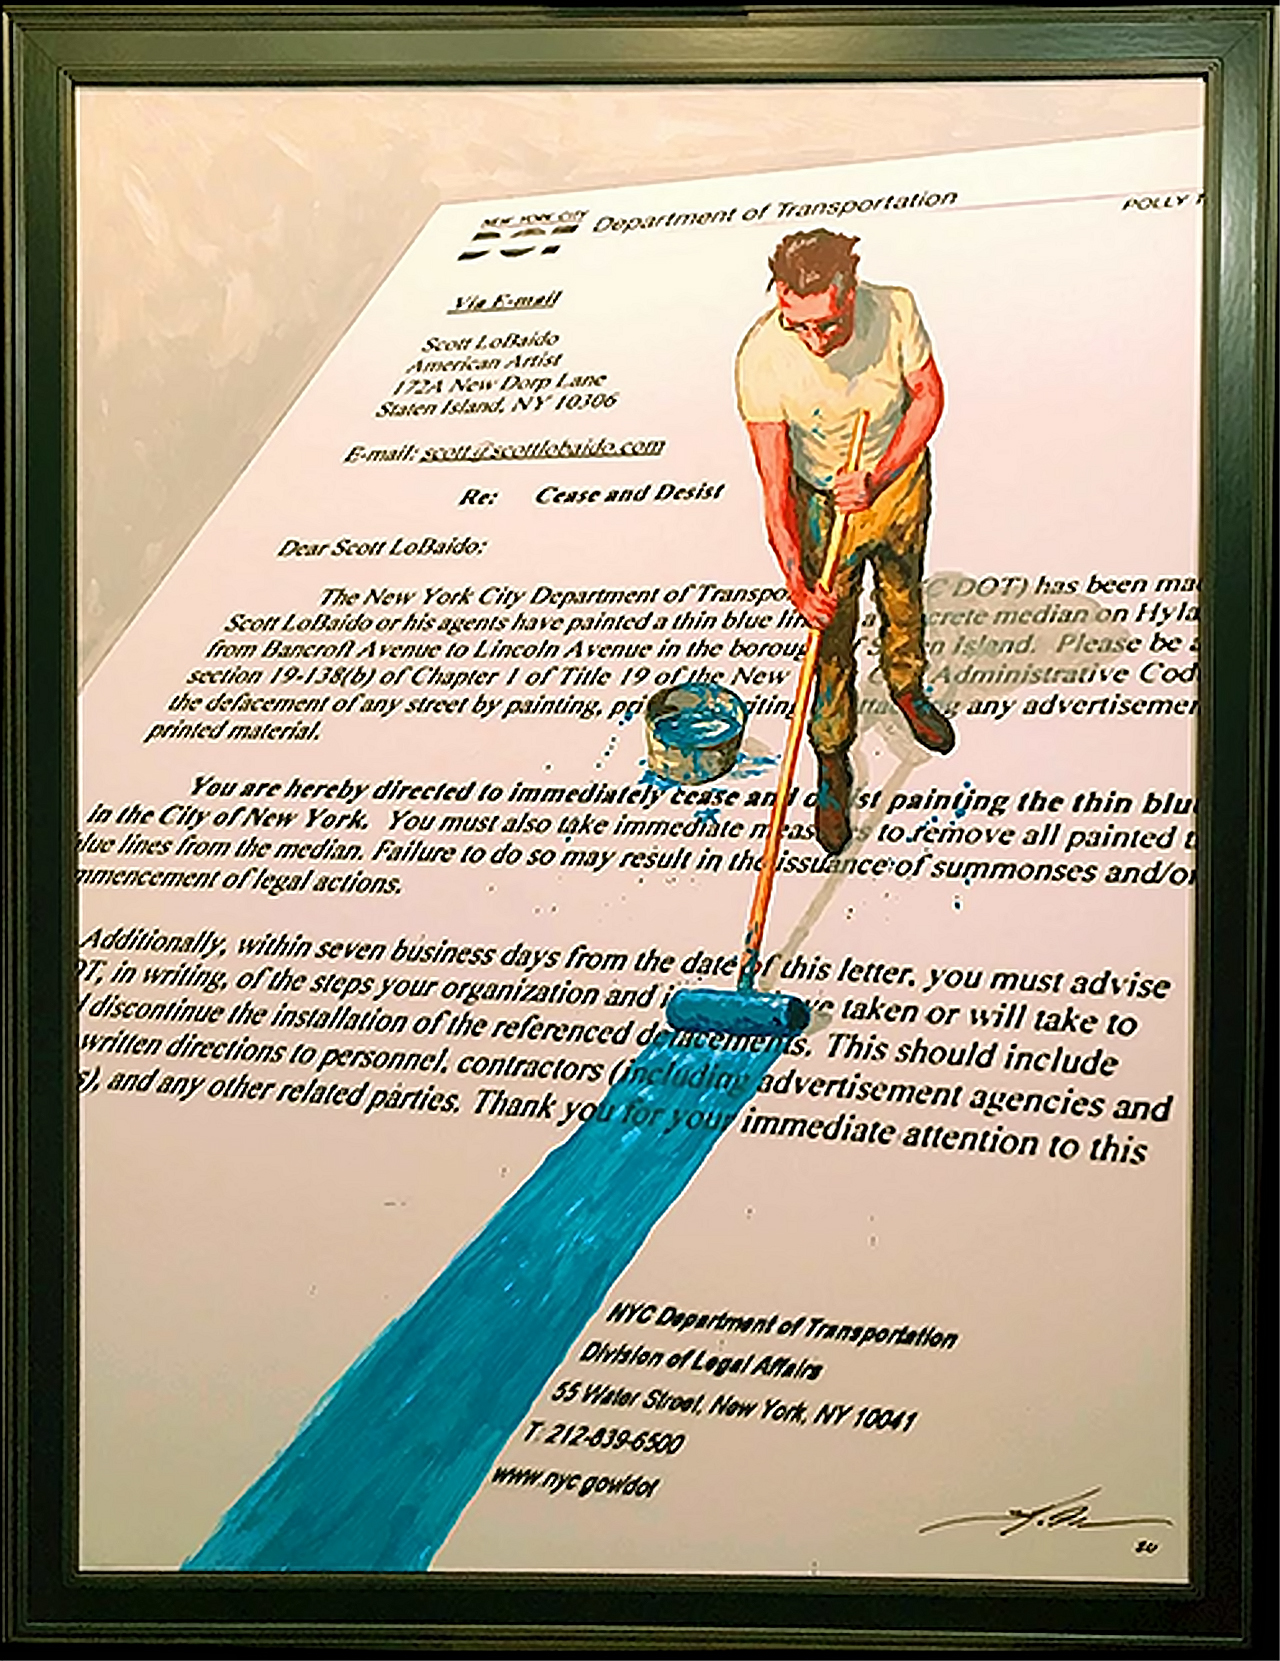 NEW YORK CITY
Department of Transportation
POLLY
Via E-mail
Scott LoBaido
American Artist
172A New Dorp Lane
Staten Island, NY 10306
E-mail: scott@scottlobaido.com
Re: Cease and Desist
Dear Scott LoBaido:
The New York City Department of Transpo C DOT) has been ma
Scott LoBaido or his agents have painted a thin blue lin a crete median on Hyla
from Bancroft Avenue to Lincoln Avenue in the boroug f S n Island. Please be a
section 19-138(b) of Chapter 1 of Title 19 of the New C Administrative Cod
the defacement of any street by painting, pri iting g any advertisemen
printed material.
You are hereby directed to immediately cease and d st painting the thin blu
in the City of New York. You must also take immediate meas s to remove all painted t
lue lines from the median. Failure to do so may result in the issuance of summonses and/or
mmencement of legal actions.
Additionally, within seven business days from the date of this letter, you must advise
OT, in writing, of the steps your organization and i ve taken or will take to
d discontinue the installation of the referenced defacements. This should include
written directions to personnel, contractors (including advertisement agencies and
s), and any other related parties. Thank you for your immediate attention to this
NYC Department of Transportation
Division of Legal Affairs
55 Water Street, New York, NY 10041
T: 212-839-6500
www.nyc.gov/dot